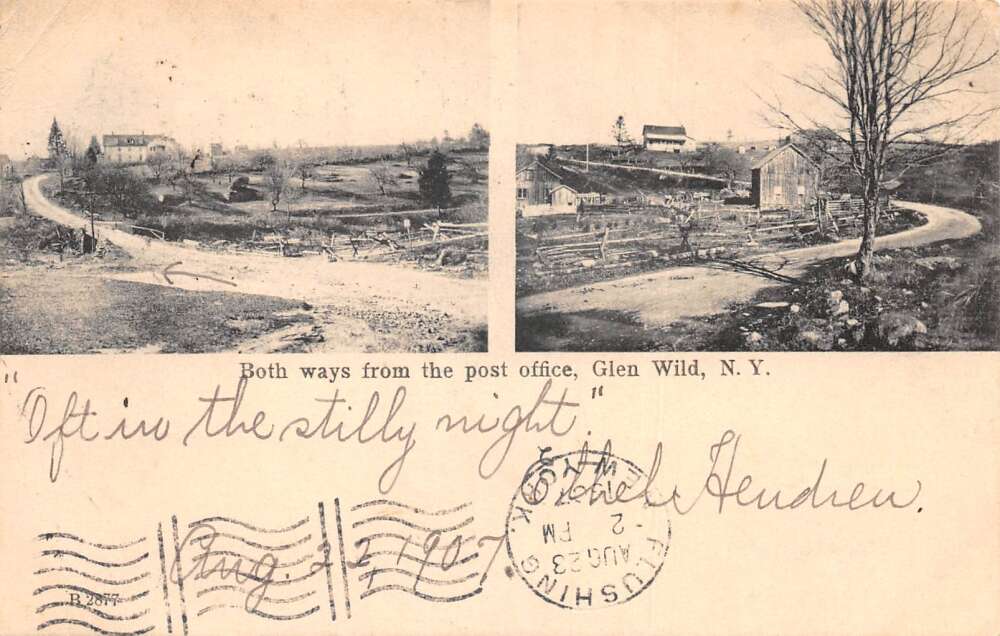 Both ways from the post office, Glen Wild, N. Y.
"Oft in the stilly night."
Ethel Hendren.
Aug. 22, 1907
R 2877
FLUSHING
AUG 23
2 - PM
NEW YORK.